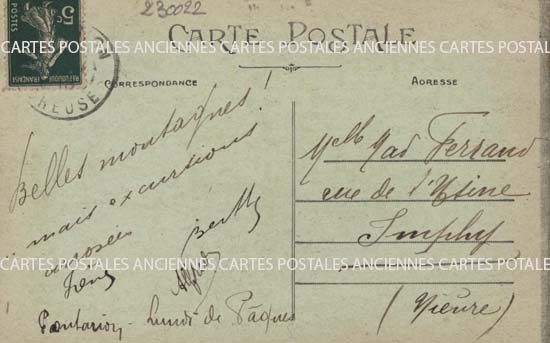 230022
5c
POSTES
REPUBLIQUE FRANÇAISE
CREUSE
CARTE POSTALE
CARTES POSTALES ANCIENNES CARTES POSTALES ANCIENNES CARTES POSTALES
CORRESPONDANCE
ADRESSE
Belles montagnes !
mais excursions
Berthe
Pontarion - Lundi de Pâques
Melle Mad Ferrand
rue de l'Usine
Imphy
(Nièvre)
CARTES POSTALES ANCIENNES CARTES POSTALES ANCIENNES CARTES POSTALES